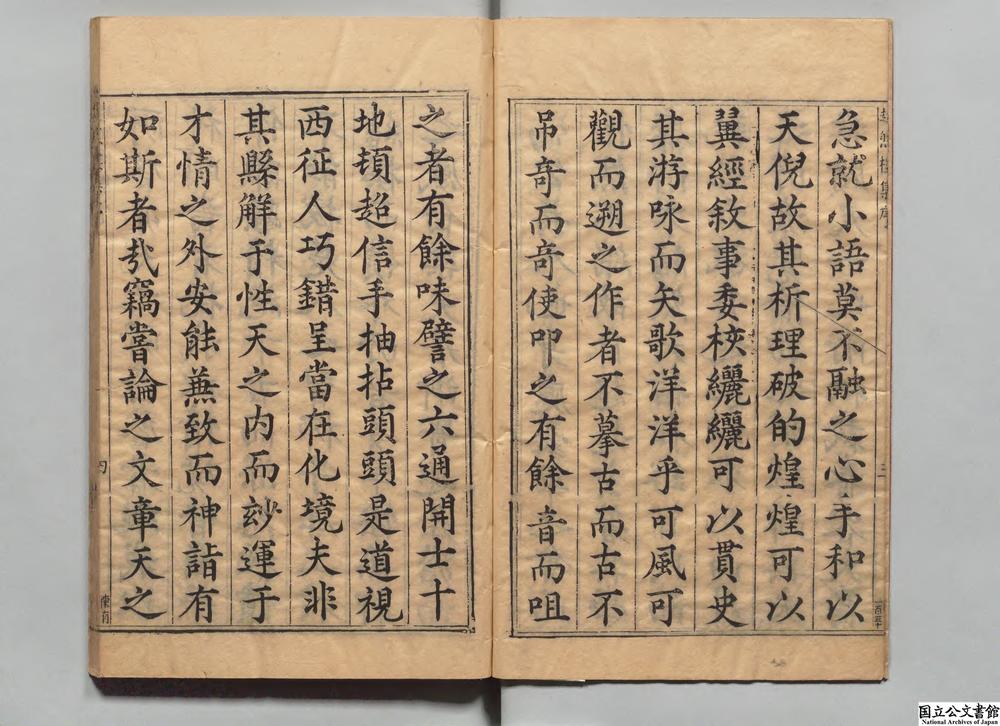 急就小語莫不融之心手和以
天倪故其析理破的煌煌可以
翼經敘事委梜纚纚可以貫史
其游咏而矢歌洋洋乎可風可
觀而遡之作者不摹古而古不
吊奇而奇使叩之有餘音而咀
之者有餘味譬之六通開士十
地頓超信手拈頭頭是道視
西征人巧錯呈當在化境夫非
其縣解于性天之内而玅運于
才情之外安能兼致而神詣有
如斯者㢤竊嘗論之文章天之
国立公文書館
National Archives of Japan